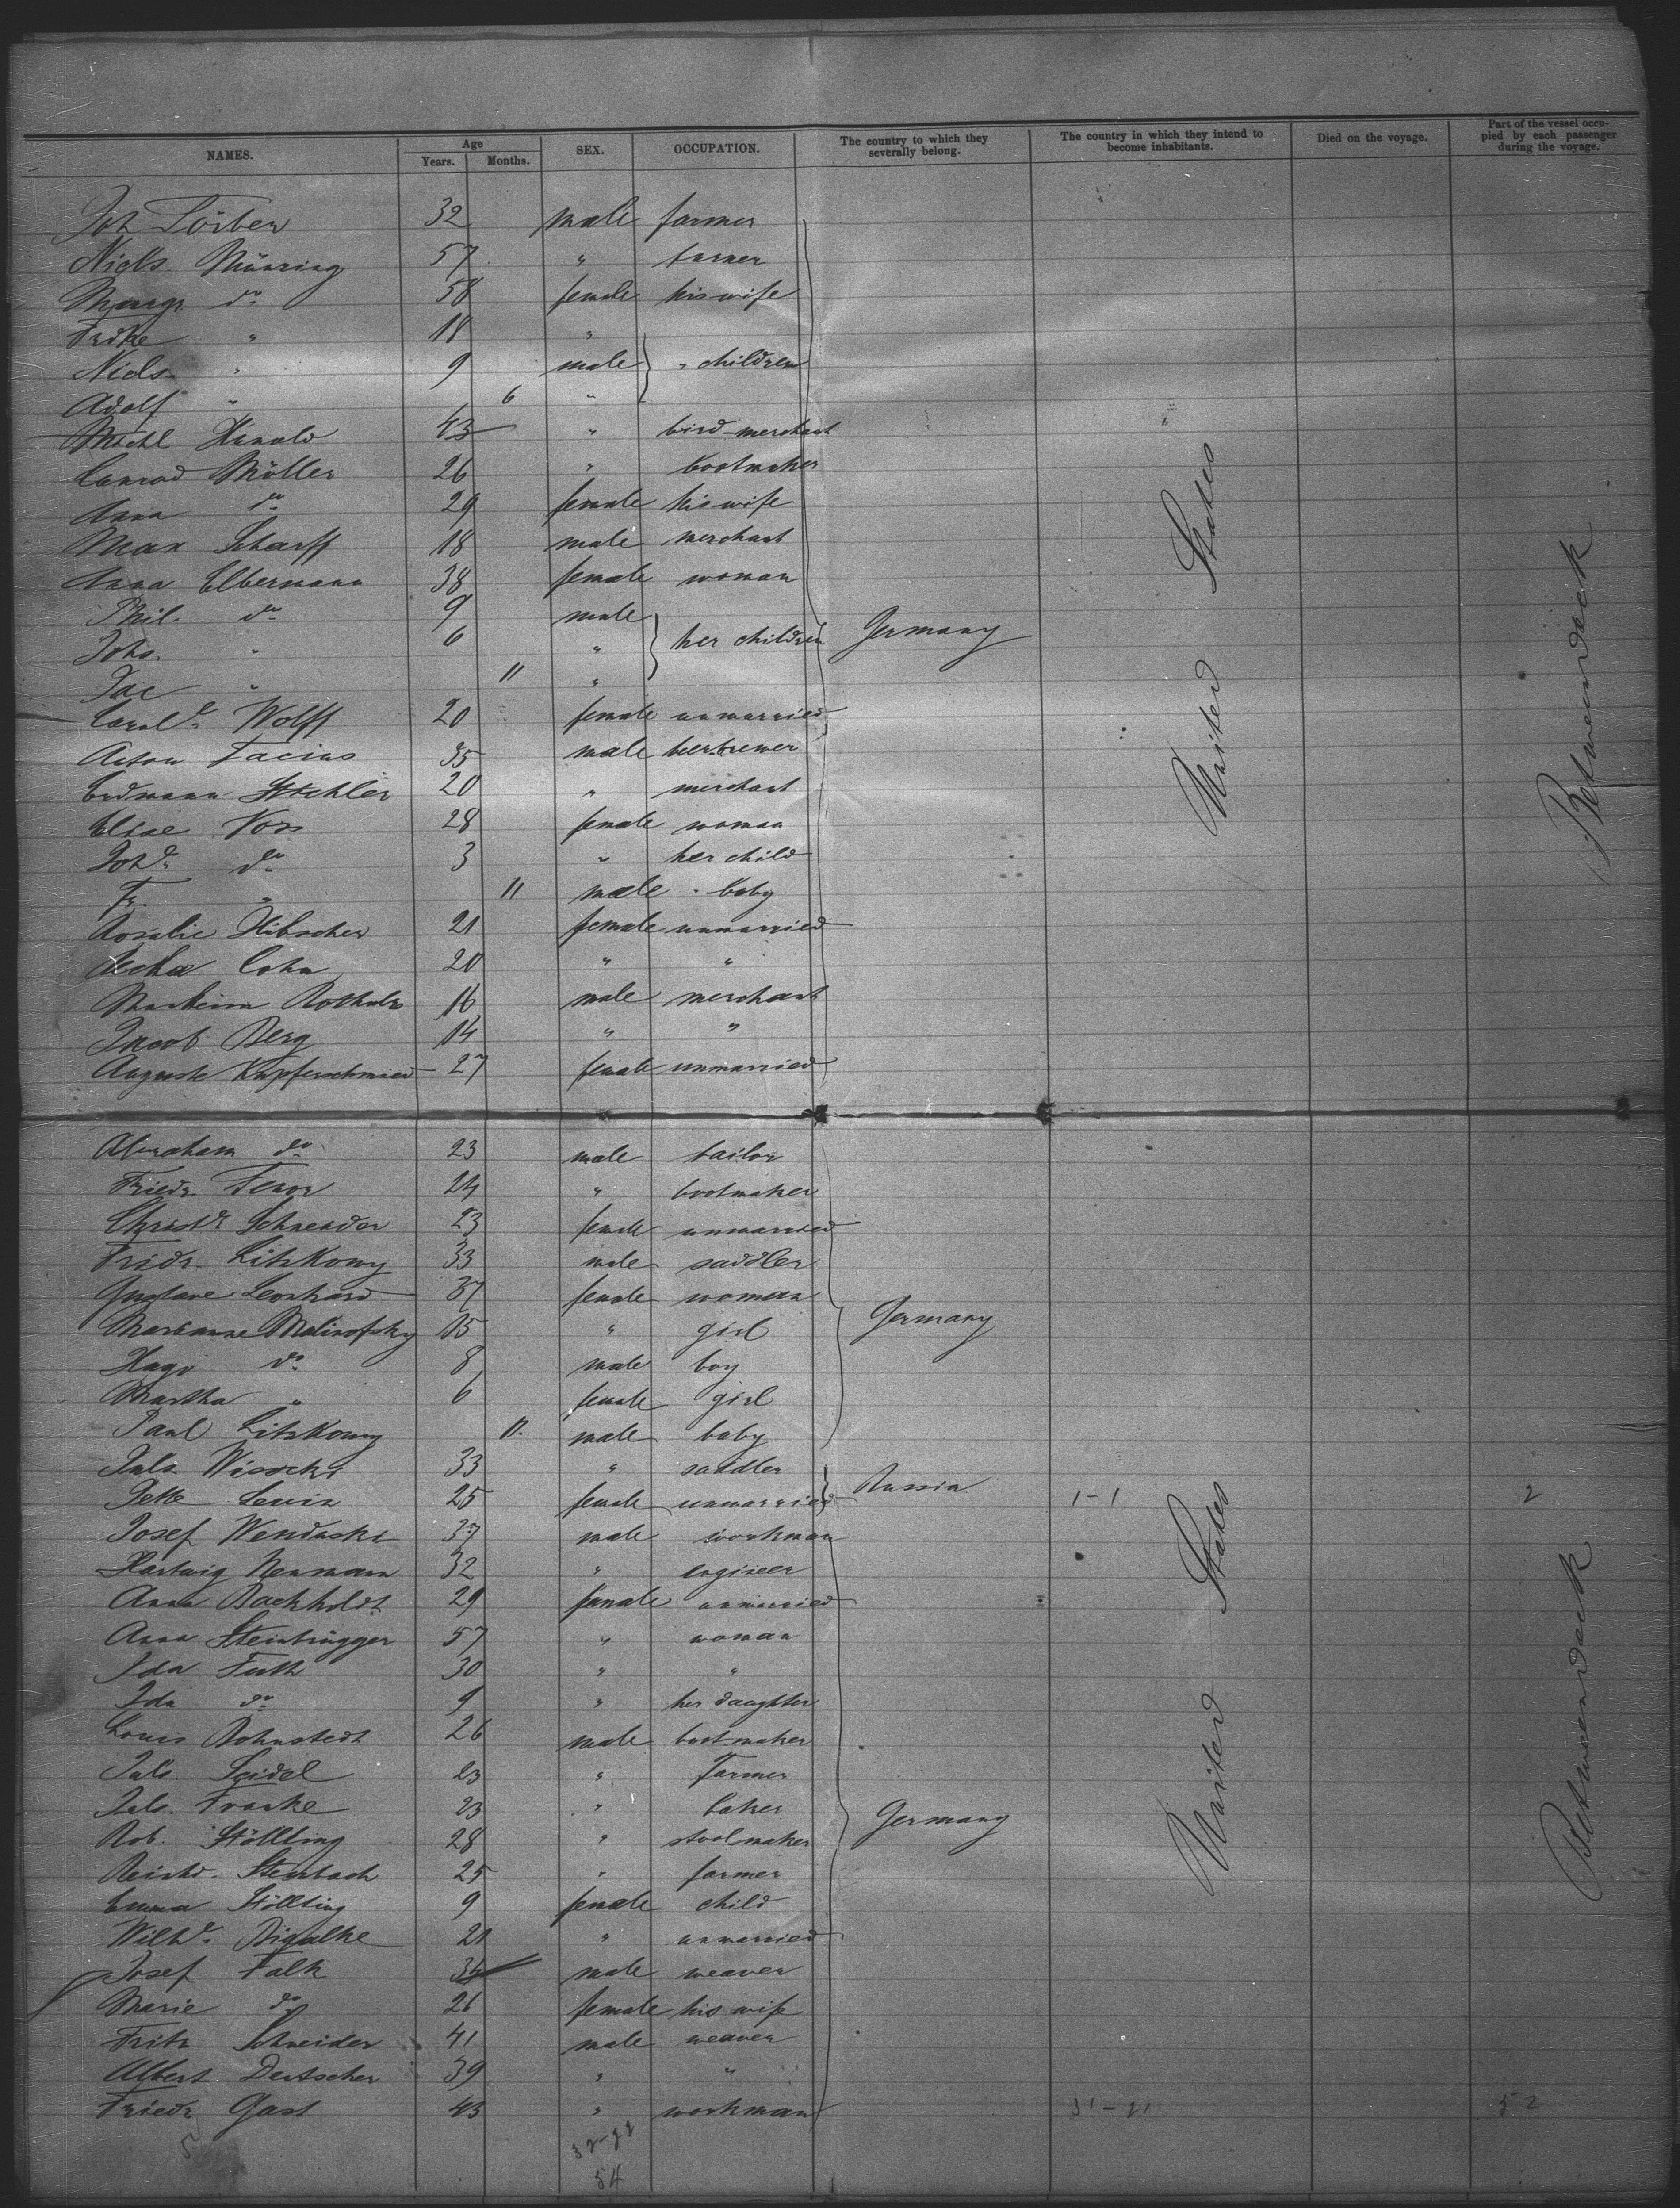 NAMES. Age Years. Months. SEX. OCCUPATION. The country to which they severally belong. The country in which they intend to become inhabitants. Died on the voyage. Part of the vessel occupied by each passenger during the voyage.
Joh Törber 32 male farmer
Niels Münring 57 " turner
Margr. do 58 female his wife
Fridke " 18 "
Niels " 9 male " children
Adolf " 6 "
Michl Hanold 43 " bird-merchant
Conrad Möller 26 " bootmaker
Anna do 29 female his wife
Max Scharff 18 male merchant
Anna Elbermann 38 female woman
Phil. do 9 male
Johs. " 6 " her children Germany
Jac " 11 "
Carole Wolff 20 female unmarried
Anton Facius 35 male beerbrewer
Erdmann Stehler 20 " merchant
Elise Voss 28 female woman
Johe do 3 " her child
Fr. " 11 male " baby
Rosalie Hibscher 21 female unmarried
Cohn 20 " "
16 male merchant
Jacob Berg 14 " "
Auguste Kupferschmied 27 female unmarried
United States
Betweendeck
Abraham do 23 male tailor
Friedr. 24 " bootmaker
Christe Schneider 23 female unmarried
Fridr. Litzkowy 33 male saddler
Gustave Leonhard 37 female woman
Marianne Malinofsky 15 " girl Germany
Hugo do 8 male boy
Martha " 6 female girl
Paul Litzkowy 11. male baby
Juls. Wisocki 33 " saddler
Jette Levin 25 female unmarried Russia 1-1 2
Josef Wenduski 37 male workman
Hartwig Neumann 32 " engineer
Anna Bachholdt 29 female unmarried
Anna Steinbrügger 57 " woman
Ida Futh 30 " "
Ida do 9 " her daughter
Louis Rohnstedt 26 male bootmaker
Juls. Seidel 23 " Farmer
Juls. Franke 23 " baker
Rob. Stöllting 28 " stoolmaker Germany
Reinhd. Steinbach 25 " farmer
Emma Stöllting 9 female child
Wilhe. Rigalke 21 " unmarried
Josef Falk 34 male weaver
Marie do 26 female his wife
Fritz Schneider 41 male weaver
Albert Dertscher 39 " "
Friedr Gast 43 " workman 31-21 52
United States
Betweendeck
5
32-22
54